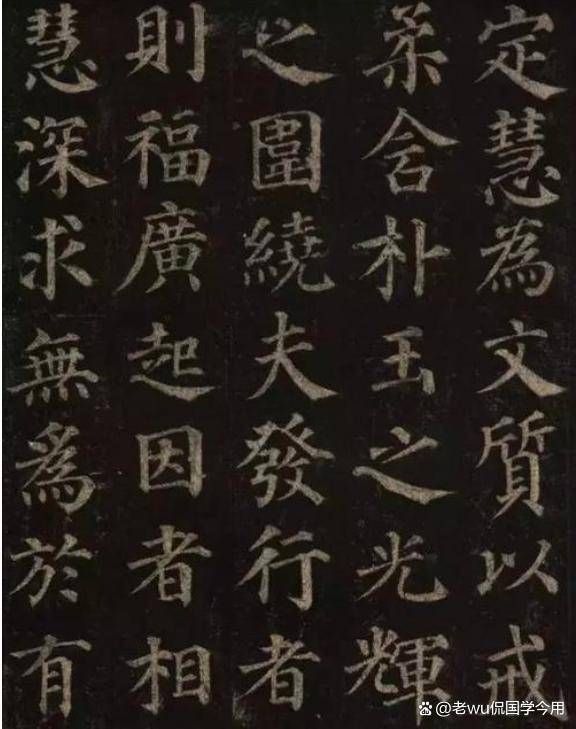 定慧為文質以戒
柔含朴玉之光輝
之圍繞夫發行者
則福廣起因者相
慧深求無為於有
@老wu侃国学今用